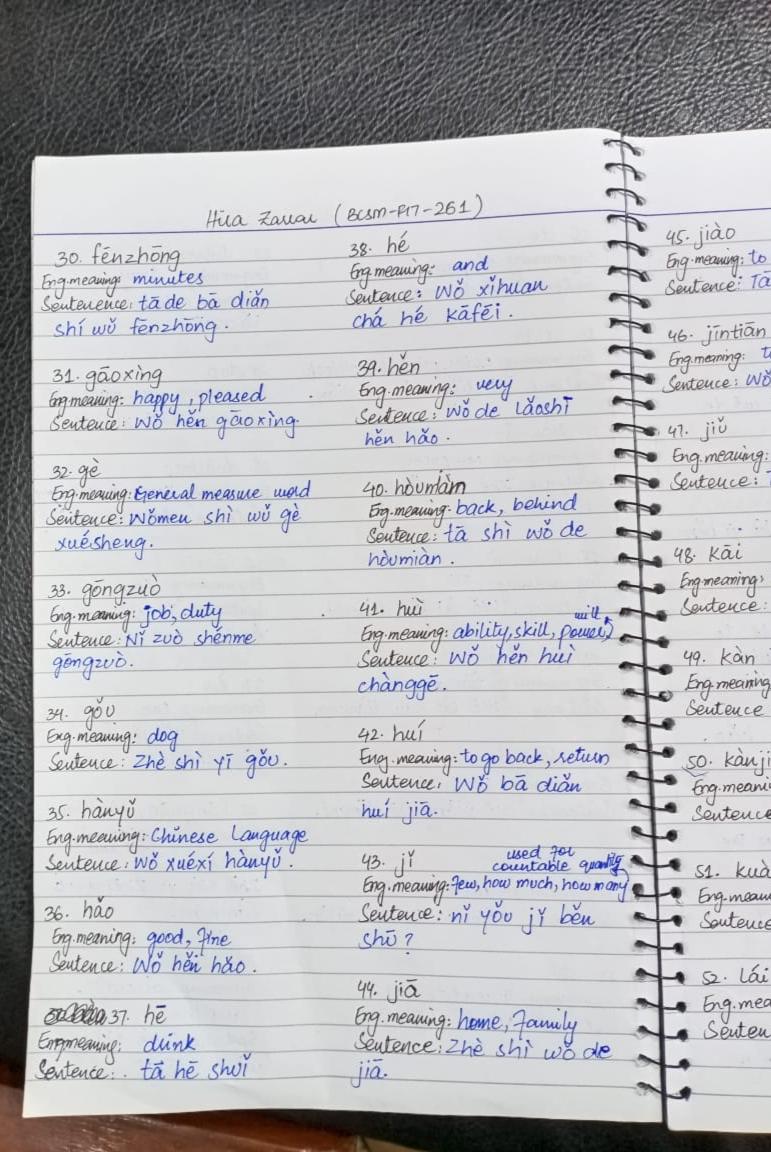 Hira Zawar (BCSM-F17-261)
30. fēnzhōng
Eng.meaning: minutes
Sentenence: tā de bā diǎn
shí wǔ fēnzhōng.
31. gāoxìng
Eng.meaning: happy, pleased
Sentence: Wǒ hěn gāoxìng
32. gè
Eng.meaning: General measure word
Sentence: Wǒmen shì wǔ gè
xuésheng.
33. gōngzuò
Eng.meaning: job, duty
Sentence: Nǐ zuò shénme
gōngzuò.
34. gǒu
Eng.meaning: dog
Sentence: Zhè shì yī gǒu.
35. hànyǔ
Eng.meaning: Chinese Language
Sentence: Wǒ xuéxí hànyǔ.
36. hǎo
Eng.meaning: good, fine
Sentence: Wǒ hěn hǎo.
37. hē
Eng.meaning: drink
Sentence: tā hē shuǐ
38. hé
Eng.meaning: and
Sentence: Wǒ xǐhuan
chá hé kāfēi.
39. hěn
Eng.meaning: very
Sentence: wǒ de lǎoshī
hěn hǎo.
40. hòumiàn
Eng.meaning: back, behind
Sentence: tā shì wǒ de
hòumiàn.
41. huì
will
Eng.meaning: ability, skill, power,
Sentence: Wǒ hěn huì
chànggē.
42. huí
Eng.meaning: to go back, return
Sentence: Wǒ bā diǎn
huí jiā.
43. jǐ
used for
countable quantity
Eng.meaning: few, how much, how many
Sentence: nǐ yǒu jǐ běn
shū?
44. jiā
Eng.meaning: home, family
Sentence: Zhè shì wǒ de
jiā.
45. jiào
Eng.meaning: to
Sentence: Tā
46. jīntiān
Eng.meaning: t
Sentence: Wǒ
47. jiǔ
Eng.meaning:
Sentence:
48. Kāi
Eng.meaning:
Sentence:
49. Kàn
Eng.meaning
Sentence
50. kànji
Eng.meani
Sentence
51. kuà
Eng.mean
Sentence
52. Lái
Eng.mea
Senten